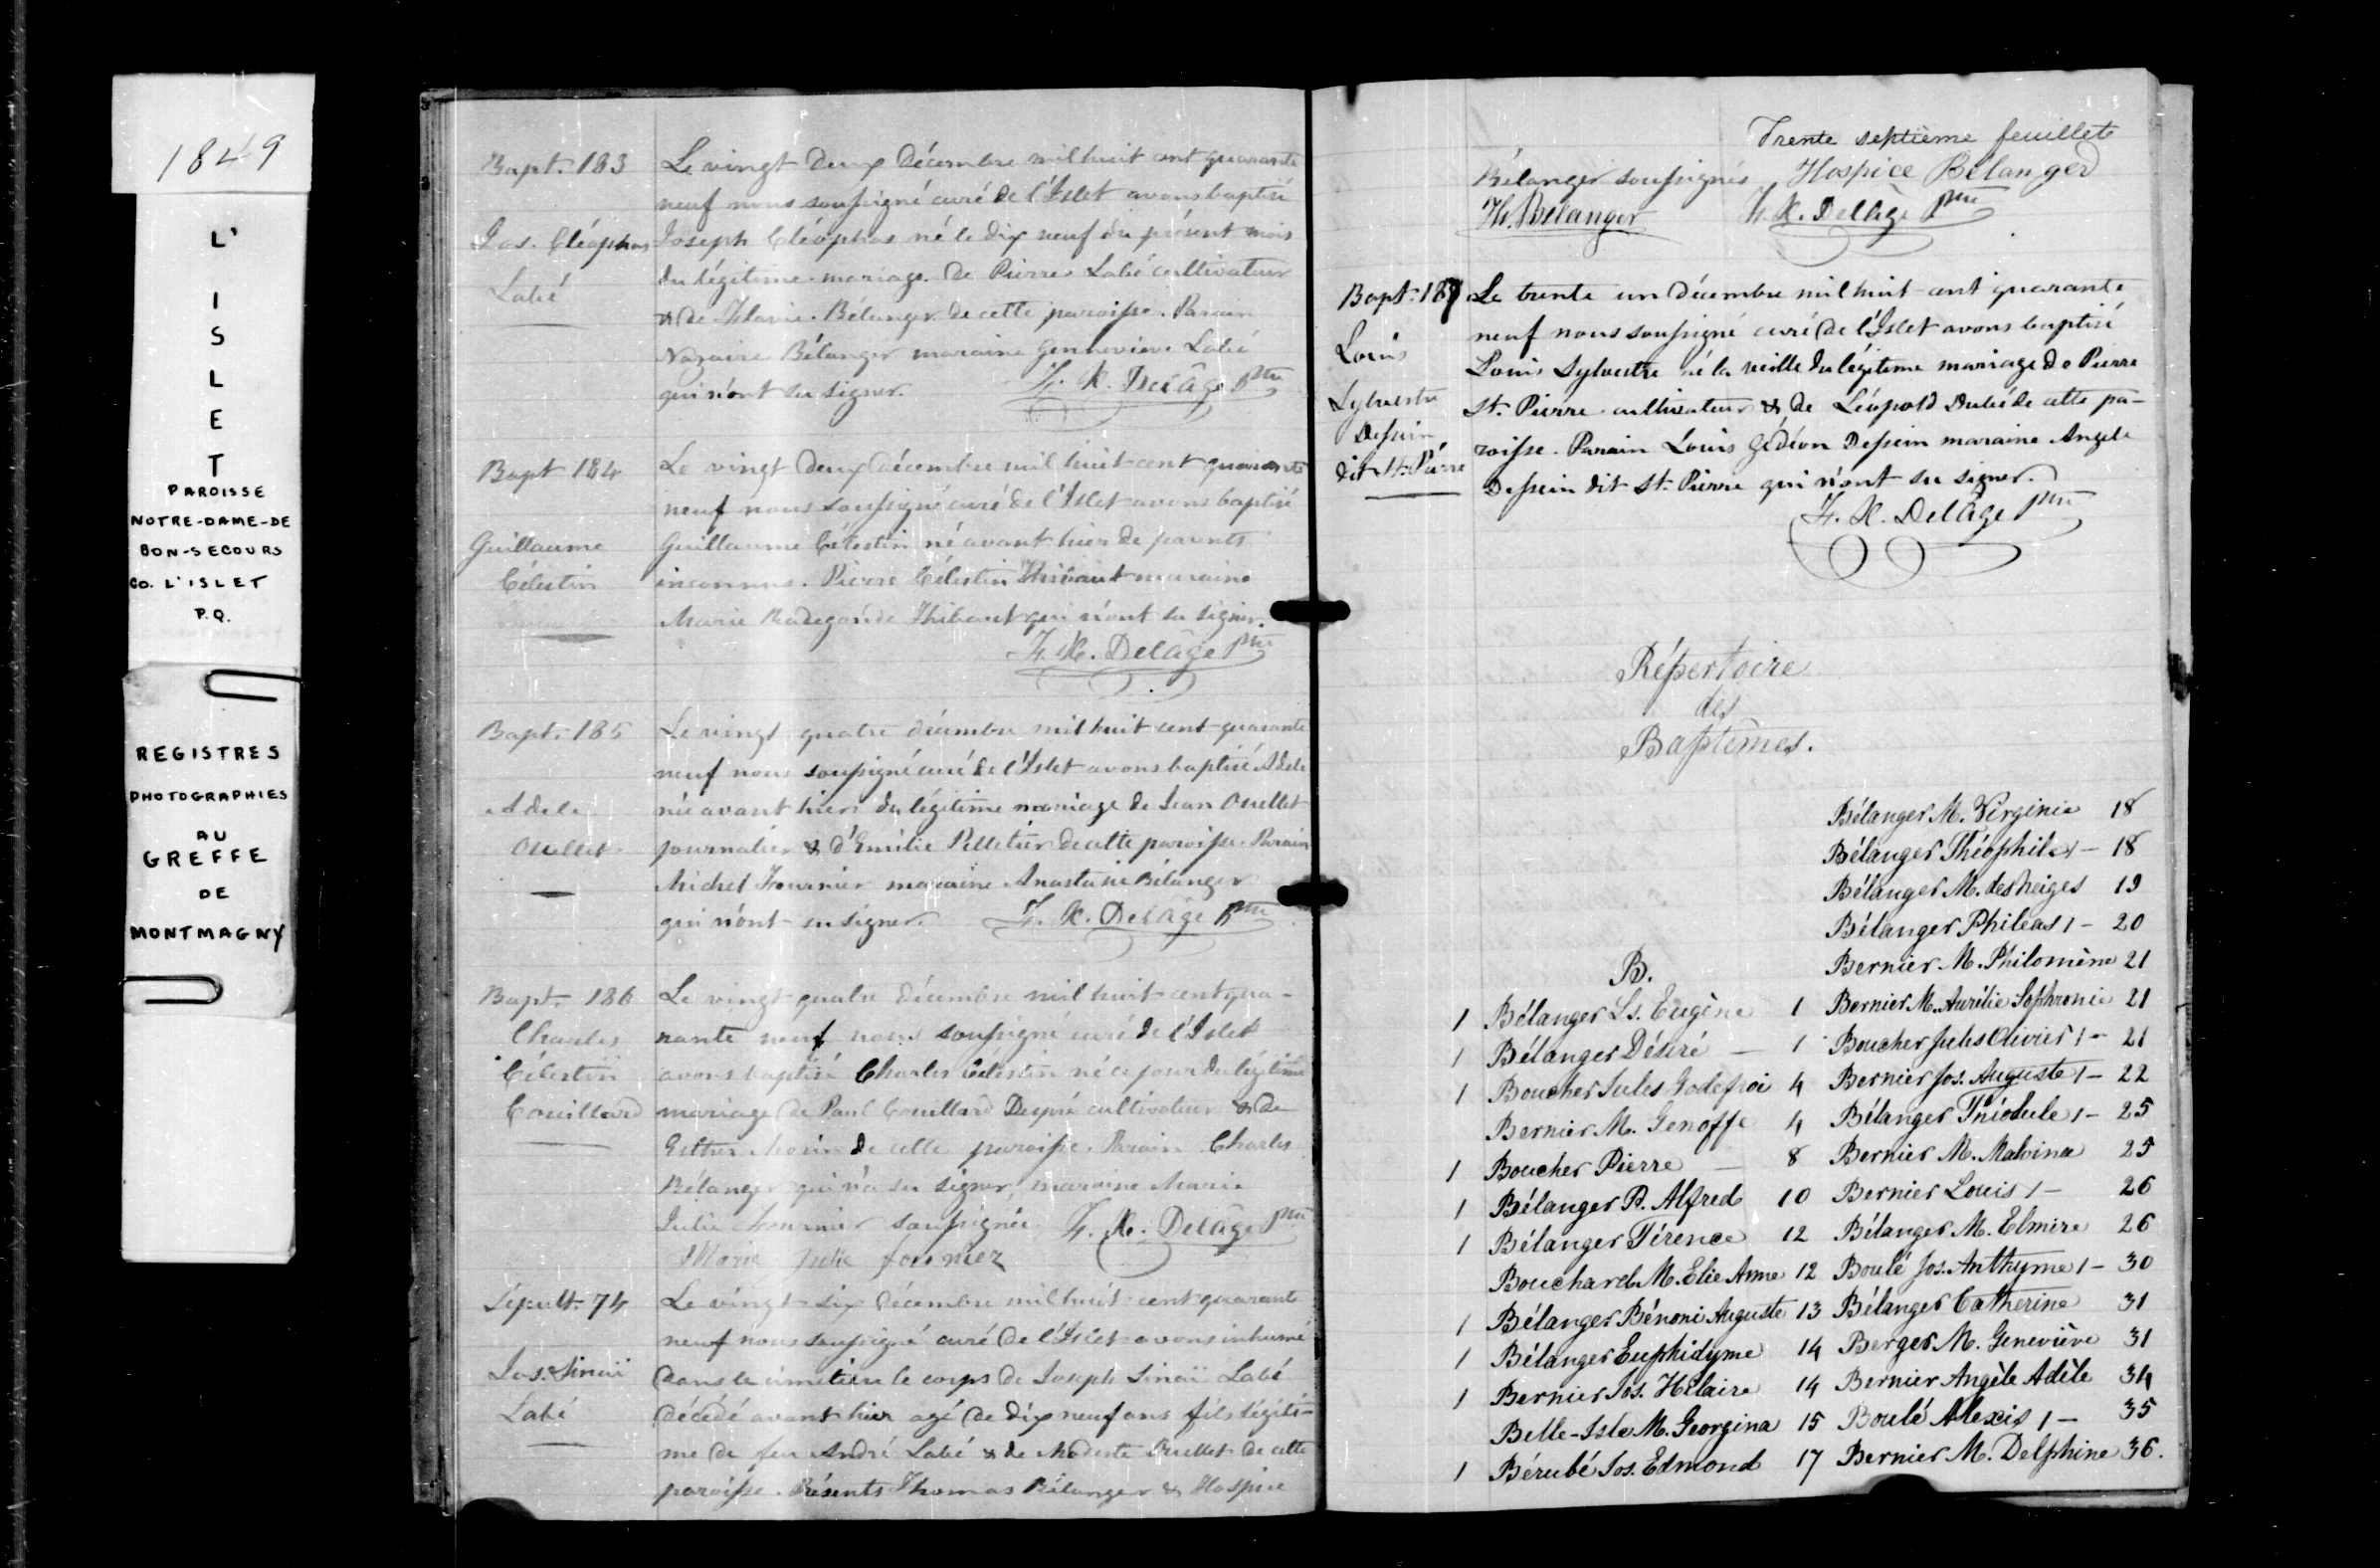 1849
L'
I
S
L
E
T
PAROISSE
NOTRE-DAME-DE
BON-SECOURS
CO. L'ISLET
P.Q.
REGISTRES
PHOTOGRAPHIES
AU
GREFFE
DE
MONTMAGNY
Bapt. 183
Jos. Cléophas
Labé
Le vingt deux Décembre mil huit cent quarante
neuf nous soussigné curé de l'Islet avons baptisé
Joseph Cléophas né le dix neuf du présent mois
du légitime mariage de Pierre Labé cultivateur
& de Flavie Bélanger de cette paroisse. Parain
Nazaire Bélanger maraine Gennevieve Labé
qui n'ont su signer. F. X. Delâge Ptre
Bapt 184
Guillaume
Célestin
Le vingt deux Décembre mil huit cent quarante
neuf nous soussigné curé de l'Islet avons baptisé
Guillaume Célestin né avant hier de parents
inconnus. Pierre Célestin Thibaut maraine
Marie Radegonde Thibaut qui n'ont su signer.
F. X. Delâge Ptre
Bapt. 185
Adele
Ouellet
Le vingt quatre décembre mil huit cent quarante
neuf nous soussigné curé de l'Islet avons baptisé Adele
née avant hier du légitime mariage de Jean Ouellet
journalier & d'Emélie Pelletier de cette paroisse. Parain
Michel Fournier maraine Anastasie Bélanger
qui n'ont su signer. F. X. Delâge Ptre
Bapt. 186
Charles
Célestin
Couillard
Le vingt quatre décembre mil huit cent qua-
rante neuf nous soussigné curé de l'Islet
avons baptisé Charles Célestin né ce jour du légitime
mariage de Paul Couillard Dupré cultivateur & de
Esther Morin de cette paroisse. Parain Charles
Bélanger qui n'a su signer, maraine Marie
Julie Fournier soussignée. F. X. Delâge Ptre
Marie Julie fournier
Sepult. 74
Jos. Sinaï
Labé
Le vingt six Décembre mil huit cent quarante
neuf nous soussigné curé de l'Islet avons inhumé
dans le cimetière le corps de Joseph Sinaï Labé
décédé avant hier agé de dix neuf ans fils légiti-
me de feu André Labé & de Modeste Ouellet de cette
paroisse. Présents Thomas Bélanger & Hospice
Trente septième feuillet
Bélanger soussignés Hospice Bélanger
Th. Bélanger F. X. Delâge Ptre
Bapt. 187
Louis
Sylvestre
Dessein
dit St. Pierre
Le trente un Décembre mil huit cent quarante
neuf nous soussigné curé de l'Islet avons baptisé
Louis Sylvestre né la veille du légitime mariage de Pierre
St. Pierre cultivateur & de Léopold Dubé de cette pa-
roisse. Parain Louis Gédéon Dessein maraine Angele
Dessein dit St. Pierre qui n'ont su signer.
F. X. Delâge Ptre
Répertoire
des
Baptêmes.
B.
1 Bélanger Ls. Eugène 1
1 Bélanger Désiré — 1
1 Boucher Jules Godefroi 4
Bernier M. Genoffe 4
1 Boucher Pierre — 8
1 Bélanger P. Alfred 10
1 Bélanger Térence 12
Bouchard M. Elie Anne 12
1 Bélanger Bénoni Auguste 13
1 Bélanger Euphidyme 14
1 Bernier Jos. Hilaire 14
Belle-Isle M. Georgina 15
1 Bérubé Jos. Edmond 17
Bélanger M. Virginie 18
Bélanger Théophile 1 — 18
Bélanger M. des neiges 19
Bélanger Phileas 1 — 20
Bernier M. Philomène 21
Bernier M. Aurélie Sophronie 21
Boucher Jules Olivier 1 — 21
Bernier Jos. Auguste 1 — 22
Bélanger Théodule 1 — 25
Bernier M. Malvina 25
Bernier Louis 1 — 26
Bélanger M. Elmire 26
Boulé Jos. Anthyme 1 — 30
Bélanger Catherine 31
Berger M. Geneviève 31
Bernier Angèle Adèle 34
Boulé Alexis 1 — 35
Bernier M. Delphine 36.